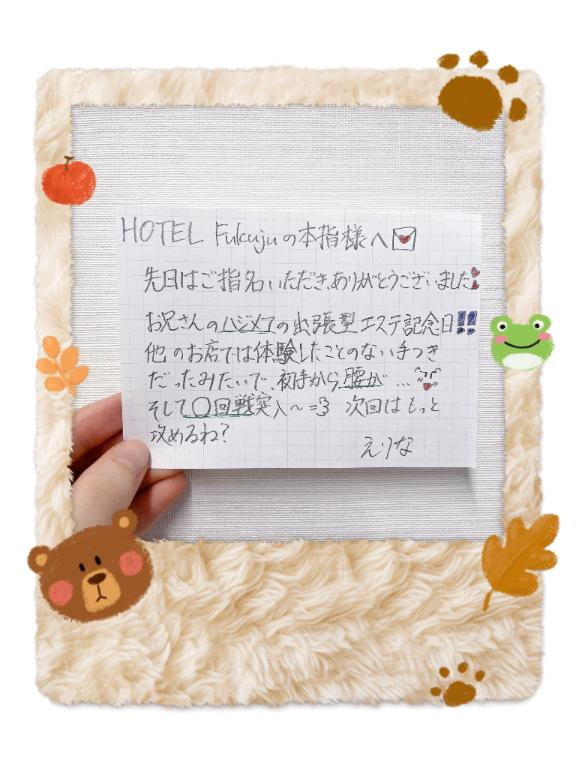 HOTEL Fukujuの本指様へ
先日はご指名いただきありがとうございました
お兄さんのハジメテの出張型エステ記念日!!
他のお店では体験したことのない手つき
だったみたいで、初手から腰が…
そして〇回戦突入〜=3 次回はもっと
攻めるね?
えりな